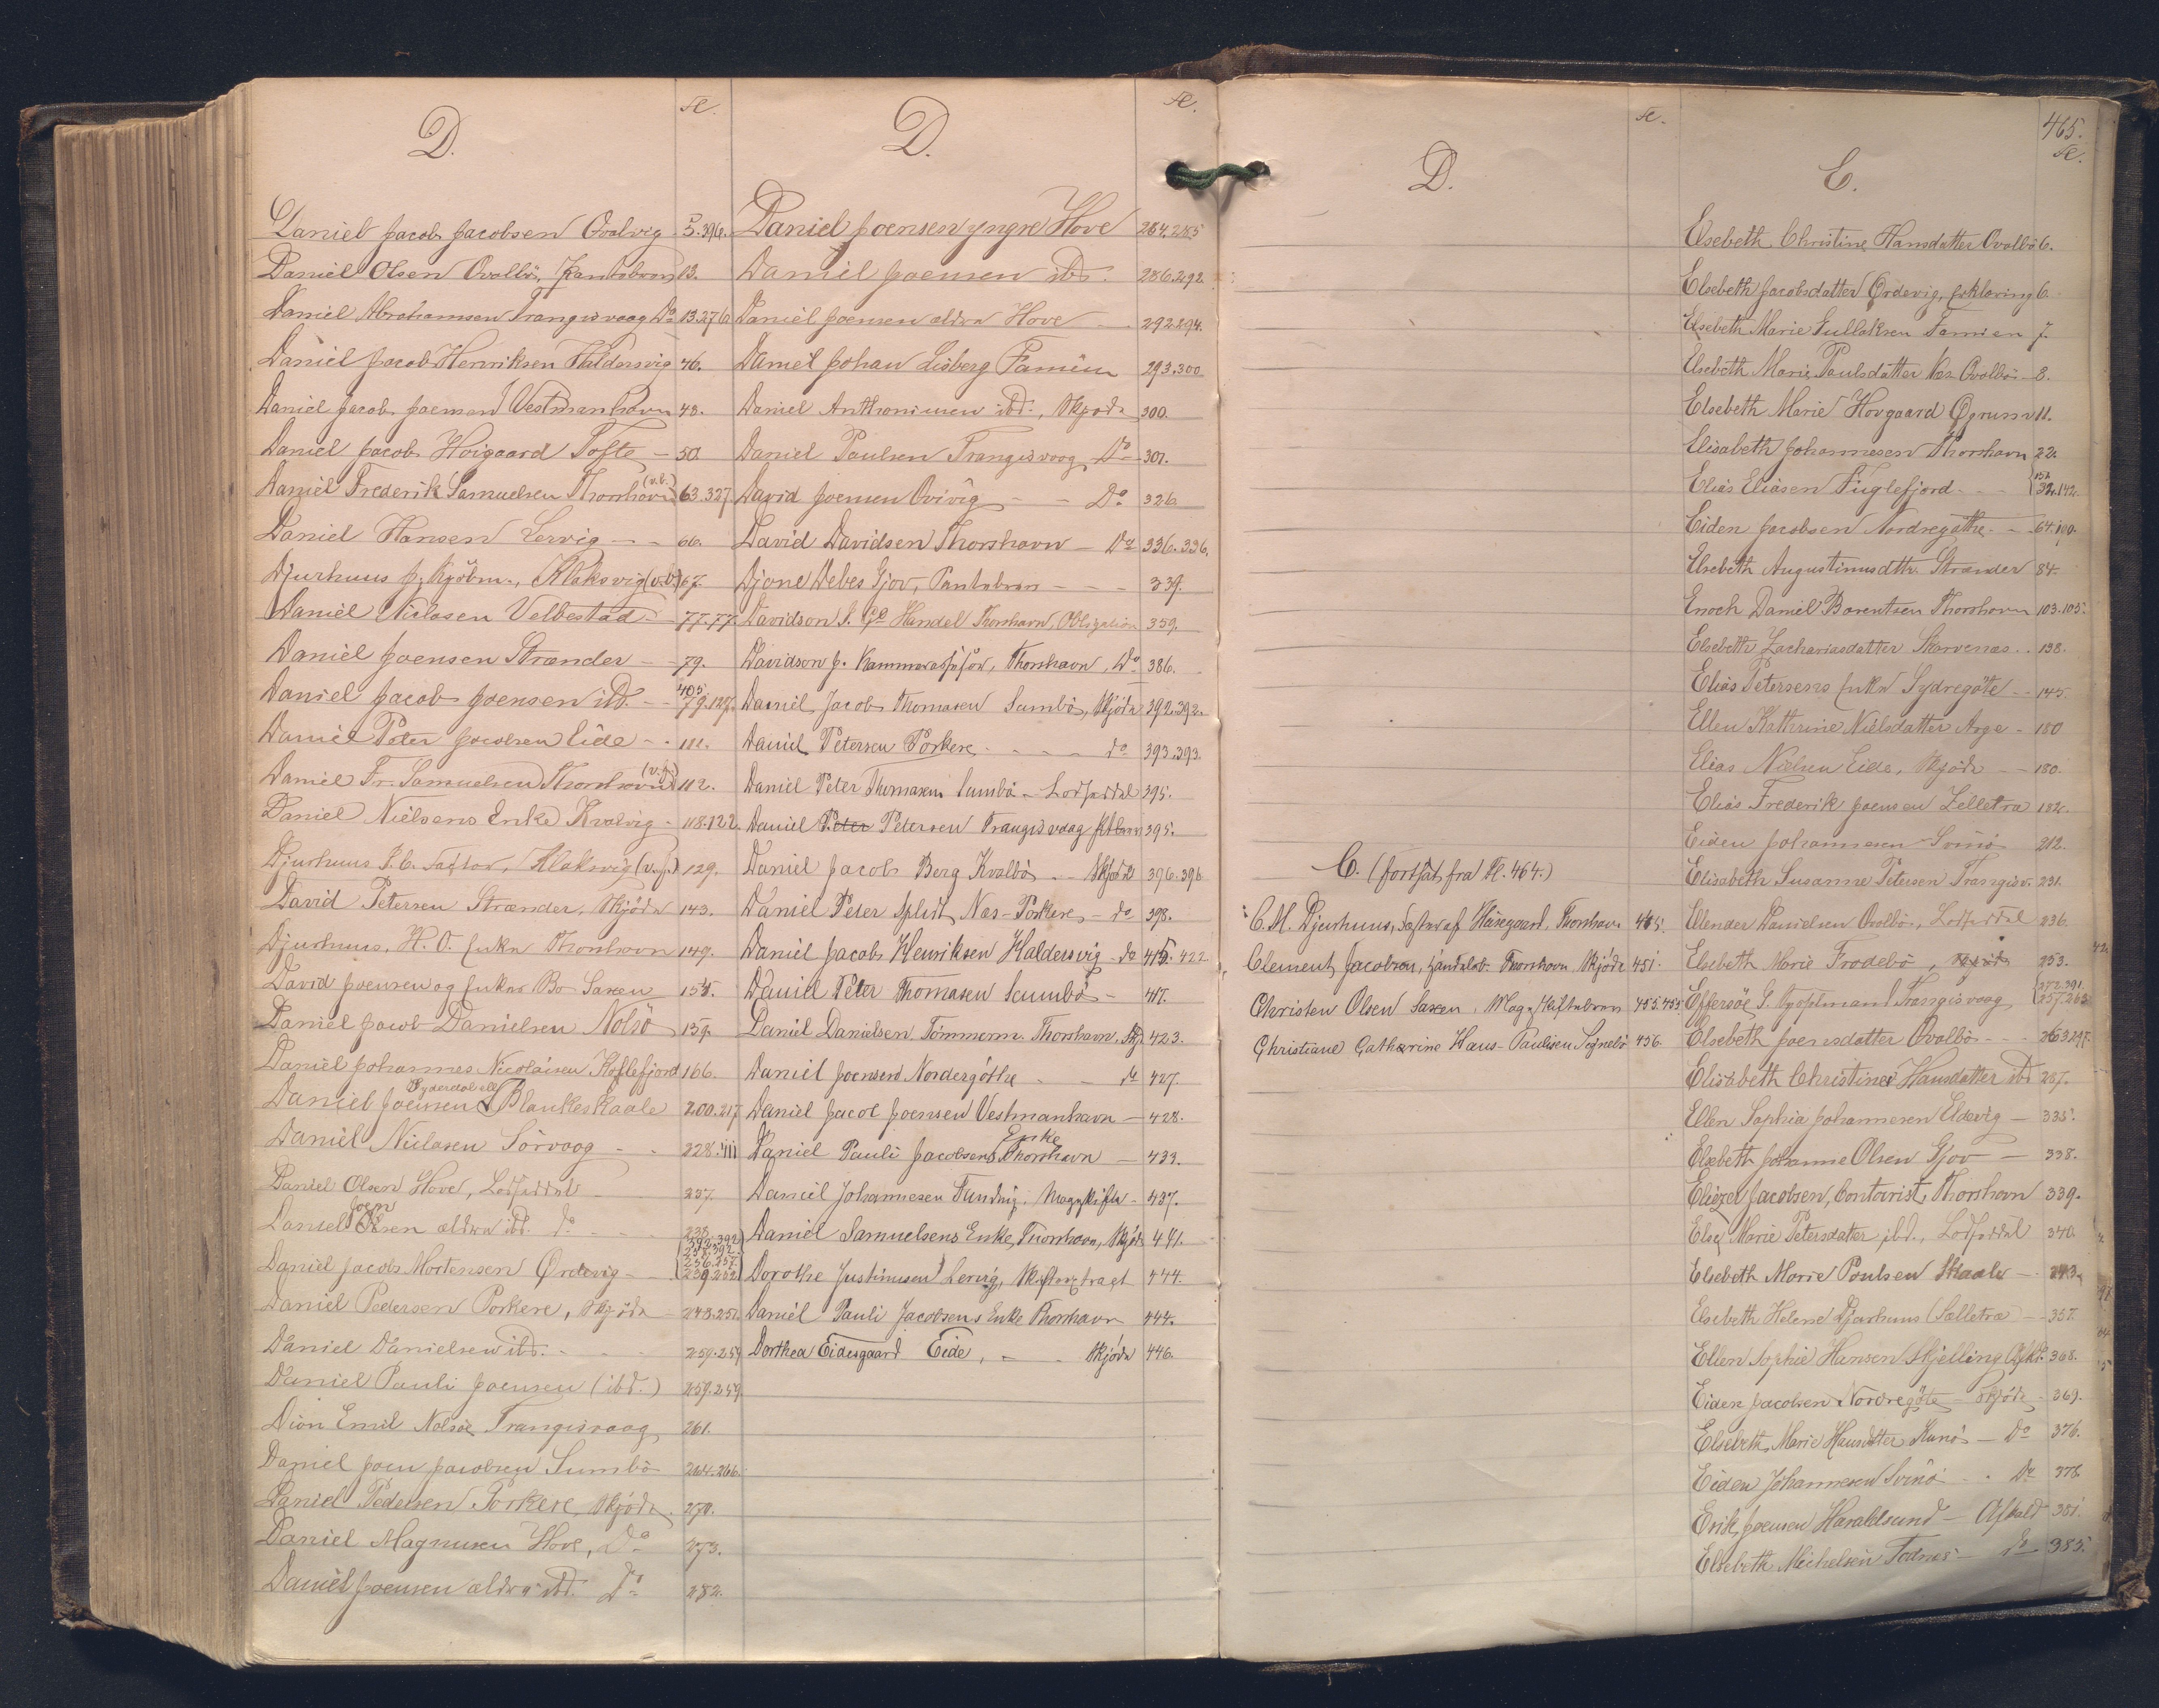 D.
Daniel Jacob Jacobsen Qvalvig 5.396.
Daniel Olsen Qvalbö, Pantebrev 13.
Daniel Abrahamsen Trangisvaag Do 13.276
Daniel Jacob Henriksen Haldersvig 46.
Daniel Jacob Joensen Vestmanhavn 48.
Daniel Jacob Höigaard Tofte 50
Daniel Frederik Samuelsen Thorshavn (v.b.) 63.327.
Daniel Hansen Lervig 66.
Djurhuus J. Kjöbm., Klaksvig (v.b.) 67.
Daniel Niclasen Velbestad 77.77.
Daniel Joensen Strænder 79.
Daniel Jacob Joensen ibd. 405. 79.127.
Daniel Peter Jacobsen Eide 111.
Daniel Fr. Samuelsen Thorshavn (v.f.) 112.
Daniel Nielsens Enke Kvalvig 118.122.
Djurhuus J.C. Factor, Klaksvig (v.f.) 129.
David Petersen Strænder, Skjöde 143.
Djurhuus, H.O. Enke Thorshavn 149.
David Joensen og Enkes Bo Saxen 155.
Daniel Jacob Danielsen Nolsö 159.
Daniel Johannes Nicolaisen Kollefjord 166.
Daniel Joensen Syderdal ell Blankeskaale 200.217
Daniel Niclasen Sörvaag 228.411
Daniel Olsen Hove, Lodseddel 237.
Daniel Joen Olsen ældre ibd. do 238.
Daniel Jacob Mortensen Ördevig 392.392 238.392. 256.257. 239.252.
Daniel Pedersen Porkere, Skjöde 248.251.
Daniel Danielsen ibd. 259.259
Daniel Pauli Joensen (ibd.) 259.259.
Dion Emil Nolsöe Trangisvaag 261.
Daniel Joen Jacobsen Sumbö 264.266.
Daniel Pedersen Porkere, Skjöde 270.
Daniel Magnusen Hove, Do 273.
Daniel Joensen ældre ibd. Do 282.
D.
Daniel Joensen yngre Hove 264.285
Daniel Joensen ibd. 286.292.
Daniel Joensen ældre Hove 292.294.
Daniel Johan Lisberg Famien 293.300
Daniel Anthonisen ibd., Skjöde 300.
Daniel Paulsen Trangisvaag Do 301.
David Joensen Qvivig Do 326.
David Davidsen Thorshavn Do 336.336.
Djone Debes Gjov, Pantebrev 339.
Davidson J. Go Handel Thorshavn, Obligation 359.
Davidson J. Kammerassessor, Thorshavn, Do 386.
Daniel Jacob Thomasen Sumbö, Skjöde 392.392.
Daniel Petersen Porkere do 393.393.
Daniel Peter Thomasen Sumbö Lodseddel 395.
Daniel Peter Petersen Trangisvaag 395.
Daniel Jacob Berg Kvalbö Skjöde 396.396
Daniel Peter Splidt Næs-Porkere do 398.
Daniel Jacob Henriksen Haldersvig do 415. 422
Daniel Peter Thomasen Sumbö 417.
Daniel Danielsen Tömmerm. Thorshavn. Skj. 423.
Daniel Joensen Nordregöthe do 427.
Daniel Jacob Joensen Vestmanhavn 428.
Daniel Pauli Jacobsens Enke Thorshavn 433.
Daniel Johannesen Funding. Mageskifte 437.
Daniel Samuelsens Enke, Thorshavn, Skjöde 441.
Dorothe Justinusen Lervig, Skifteextract 444.
Daniel Pauli Jacobsens Enke Thorshavn 444.
Dorthea Eidesgaard Eide, Skjöde 446.
D.
C. (fortsat fra Pl. 464.)
C.M. Djurhuus, Fæster af Thorshavn 445.
Clement Jacobsen, Handelsb. Thorshavn Skjöde 451.
Christen Olsen Saxen, Mageskiftebrev 455.455
Christiane Catharine Hans-Paulsen Segnebö 456.
465.
E.
Elsebeth Christine Hansdatter Qvalbö 6.
Elsebeth Jacobsdatter Ördevig, Erklæring 6.
Elsebeth Marie Gullaksen Famien 7.
Elsebeth Marie Paulsdatter Næs Qvalbö 8.
Elsebeth Marie Hovgaard Ögrum 11.
Elisabeth Johannesen Thorshavn 22.
Elias Eliasen Fuglefjord 151. 32.142.
Eiden Jacobsen Nordregöthe 64.100.
Elsebeth Augustinusdttr. Strænder 84.
Enoch Daniel Barentsen Thorshavn 103.105.
Elsebeth Zachariasdatter Skarvenæs 138.
Elias Petersens Enke Sydregöte 145.
Ellen Katherine Nielsdatter Arge 180
Elias Nielsen Eide, Skjöde 180.
Elias Frederik Joensen Zelletræ 182.
Eiden Johannesen Svinö 212.
Elisabeth Susanne Petersen Trangisv. 231.
Elender Danielsen Qvalbö, Lodseddel 236.
Elsebeth Marie Frodebö, Skjöde 253.
Effersöe G. Kjöbmand Trangisvaag 272.391. 257.263
Elsebeth Joensdatter Qvalbö 263.297.
Elisabeth Christine Hansdatter ibd 287.
Ellen Sophia Johannesen Eldevig 335.
Elsebeth Johanne Olsen Gjov 338.
Eliezer Jacobsen, Contorist, Thorshavn 339.
Else Marie Petersdater ibd., Lodseddel 340.
Elsebeth Marie Poulsen Skaale 343.
Elsebeth Helene Djurhuus (Sælletræ 357.
Ellen Sophie Hansen Skjelling Afkl. 368.
Eiden Jacobsen Nordregöte Skjöde 369.
Elsebeth Marie Hansdatter Kunö Do 376.
Eiden Johannesen Svinö Do 378.
Erik Joensen Haraldsund Afkald 381.
Elsebeth Michelsen Todnæs Do 385.